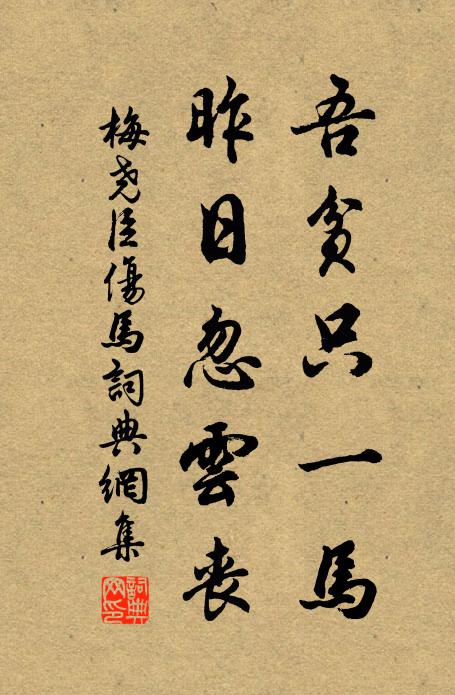 吾貧只一馬
昨日忽雲喪
梅堯臣傷馬詞典網集
詞典網印